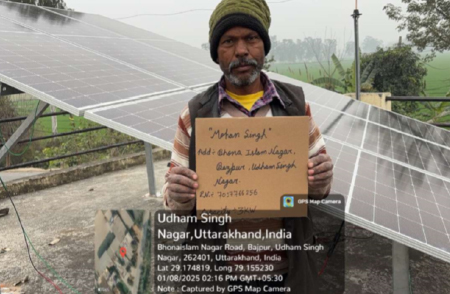 "Mohan Singh"
Add:- Bhona Islam Nagar,
Bazpur, Udham Singh
Nagar
GPS Map Camera
Udham Singh
Nagar,Uttarakhand,India
Bhonaislam Nagar Road, Bajpur, Udham Singh
Nagar, 262401, Uttarakhand, India
Lat 29.174819, Long 79.155230
01/08/2025 02:16 PM GMT+05:30
Note : Captured by GPS Map Camera